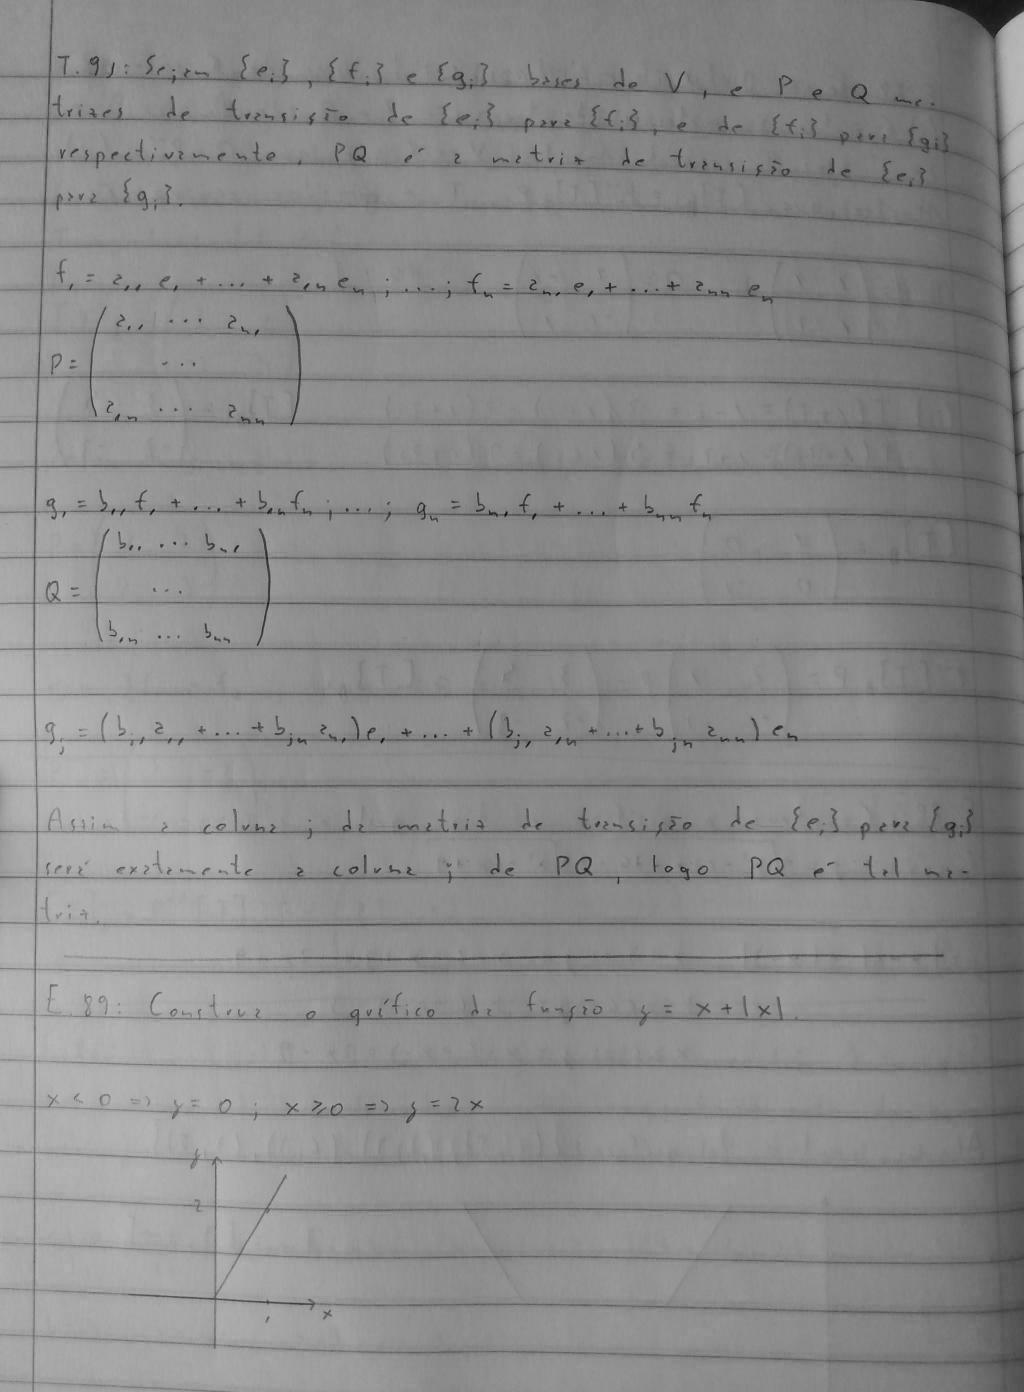 T.91: Sejam {eᵢ}, {fᵢ} e {gᵢ} bases de V, e P e Q ma-
trizes de transição de {eᵢ} para {fᵢ}, e de {fᵢ} para {gᵢ}
respectivamente. PQ é a matriz de transição de {eᵢ}
para {gᵢ}.
f₁ = a₁₁ e₁ + ... + a₁ₙ eₙ ; ... ; fₙ = aₙ₁ e₁ + ... + aₙₙ eₙ
a₁₁ ... aₙ₁
P = ( ... )
a₁ₙ ... aₙₙ
g₁ = b₁₁ f₁ + ... + b₁ₙ fₙ ; ... ; gₙ = bₙ₁ f₁ + ... + bₙₙ fₙ
b₁₁ ... bₙ₁
Q = ( ... )
b₁ₙ ... bₙₙ
gⱼ = (bⱼ₁ a₁₁ + ... + bⱼₙ aₙ₁) e₁ + ... + (bⱼ₁ a₁ₙ + ... + bⱼₙ aₙₙ) eₙ
Assim a coluna j da matriz de transição de {eᵢ} para {gᵢ}
será exatamente a coluna j de PQ, logo PQ é tal ma-
triz.
E.89: Construa o gráfico da função y = x + |x|.
x < 0 => y = 0 ; x ≥ 0 => y = 2x
y
2
1
x